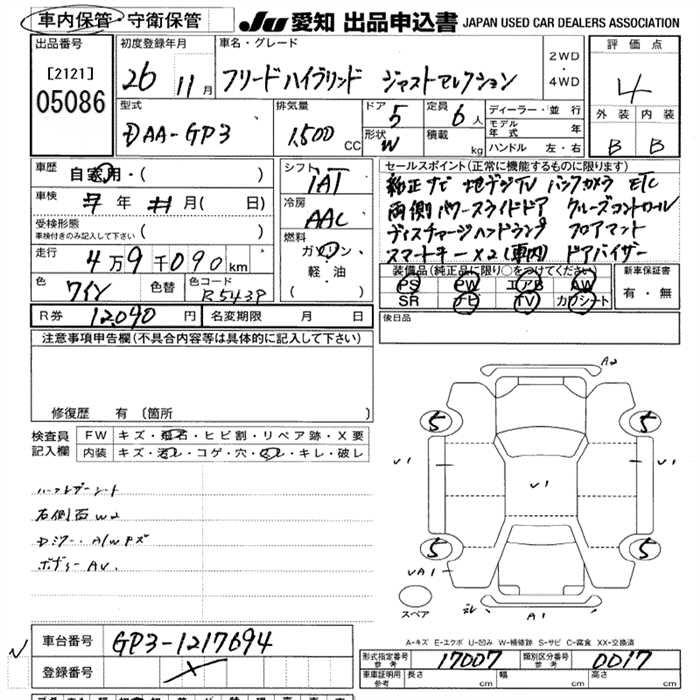 車内保管・守衛保管
JU 愛知 出品申込書 JAPAN USED CAR DEALERS ASSOCIATION
出品番号
[2121]
05086
初度登録年月
26 11月
車名・グレード
フリードハイブリッド ジャストセレクション
2WD・4WD
評価点
4
型式
DAA-GP3
排気量
1,500 CC
ドア
5
形状
W
定員
6人
積載
kg
ディーラー・並行
モデル年式 年
ハンドル 左・右
外装 内装
B B
車歴
自家用・( )
車検
年 月( 日)
受検形態
車検付きのみ記入して下さい ( )
走行
4万9千090km
色
ワイン
色替
色コード
R543P
シフト
IAT
冷房
AAC
燃料
ガソリン
軽・油
( )
セールスポイント(正常に機能するものに限ります)
純正ナビ 地デジTV バックカメラ ETC
両側パワースライドドア クルーズコントロール
ディスチャージヘッドランプ フロアマット
スマートキー×2(車内) ドアバイザー
装備品(純正品に限り○をつけてください)
PS PW エアB AW
SR ナビ TV カワシート
新車保証書
有・無
R券 12,090円
名変期限 月 日
後日品
注意事項申告欄(不具合内容等は具体的に記入して下さい)
修復歴 有(箇所 )
検査員記入欄
FW キズ・飛石・ヒビ割・リペア跡・X要
内装 キズ・汚レ・コゲ・穴・スレ・キレ・破レ
ハーフレザーシート
右側面W2
ドアミラー A/Wキズ
ボディーAU.
A2
5 5
U1 U1 U1
5 5
UA1
スペア
A1
A-キズ E-エクボ U-凹み W-補修跡 S-サビ C-腐食 XX-交換済
車台番号 GP3-1217694
登録番号
形式指定番号 参考 17007
類別区分番号 参考 0017
車庫証明用 参考 長さ cm 幅 cm 高さ cm